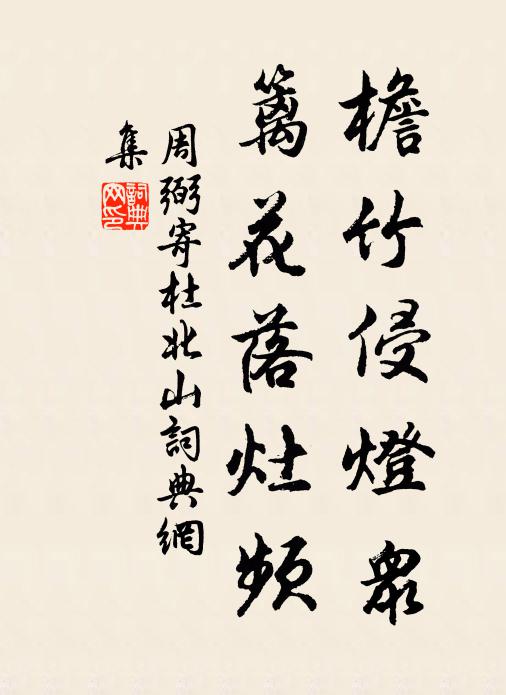 檐竹侵燈衆
籬花落灶頻
周弼寄杜北山詞典網
集
詞典網印